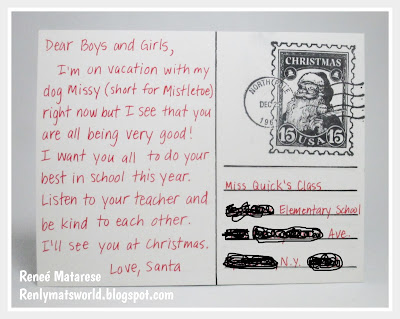 Dear Boys and Girls,
I'm on vacation with my
dog Missy (short for Mistletoe)
right now but I see that you
are all being very good!
I want you all to do your
best in school this year.
Listen to your teacher and
be kind to each other.
I'll see you at Christmas.
Love, Santa
CHRISTMAS
15 USA 15
DEC
Miss Quick's Class
Elementary School
Ave.
N.Y.
Reneé Matarese
Renlymatsworld.blogspot.com